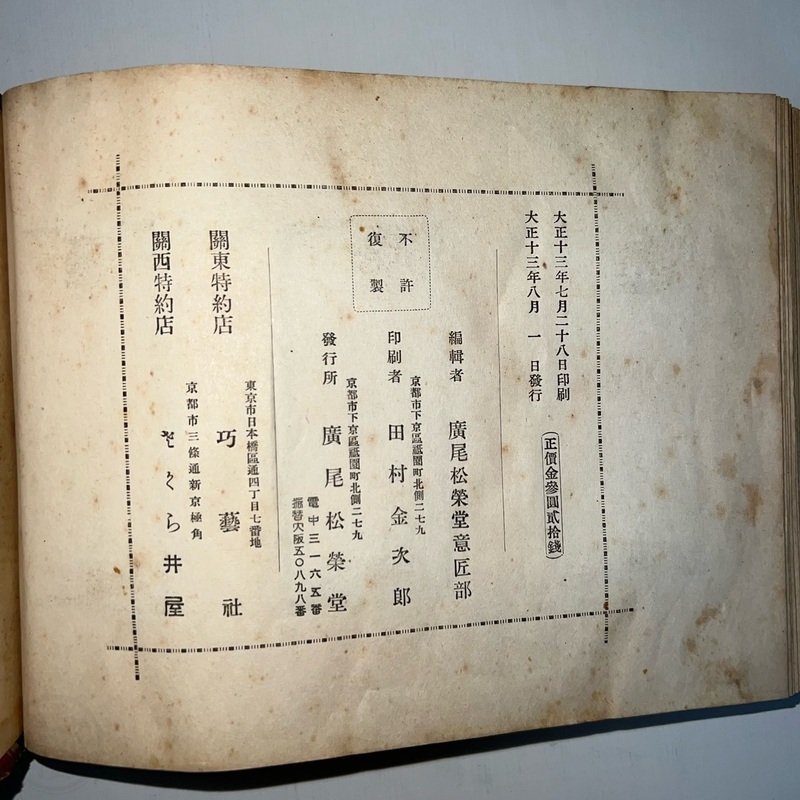 大正十三年七月二十八日印刷
大正十三年八月一日發行
正價金參圓貳拾錢
不許
復製
編輯者 廣尾松榮堂意匠部
京都市下京區祇園町北側二七九
印刷者 田村金次郎
京都市下京區祇園町北側二七九
發行所 廣尾松榮堂
電中三一六五番
振替大阪五〇八九八番
東京市日本橋區通四丁目七番地
關東特約店 巧藝社
京都市三條通新京極角
關西特約店 さくら井屋